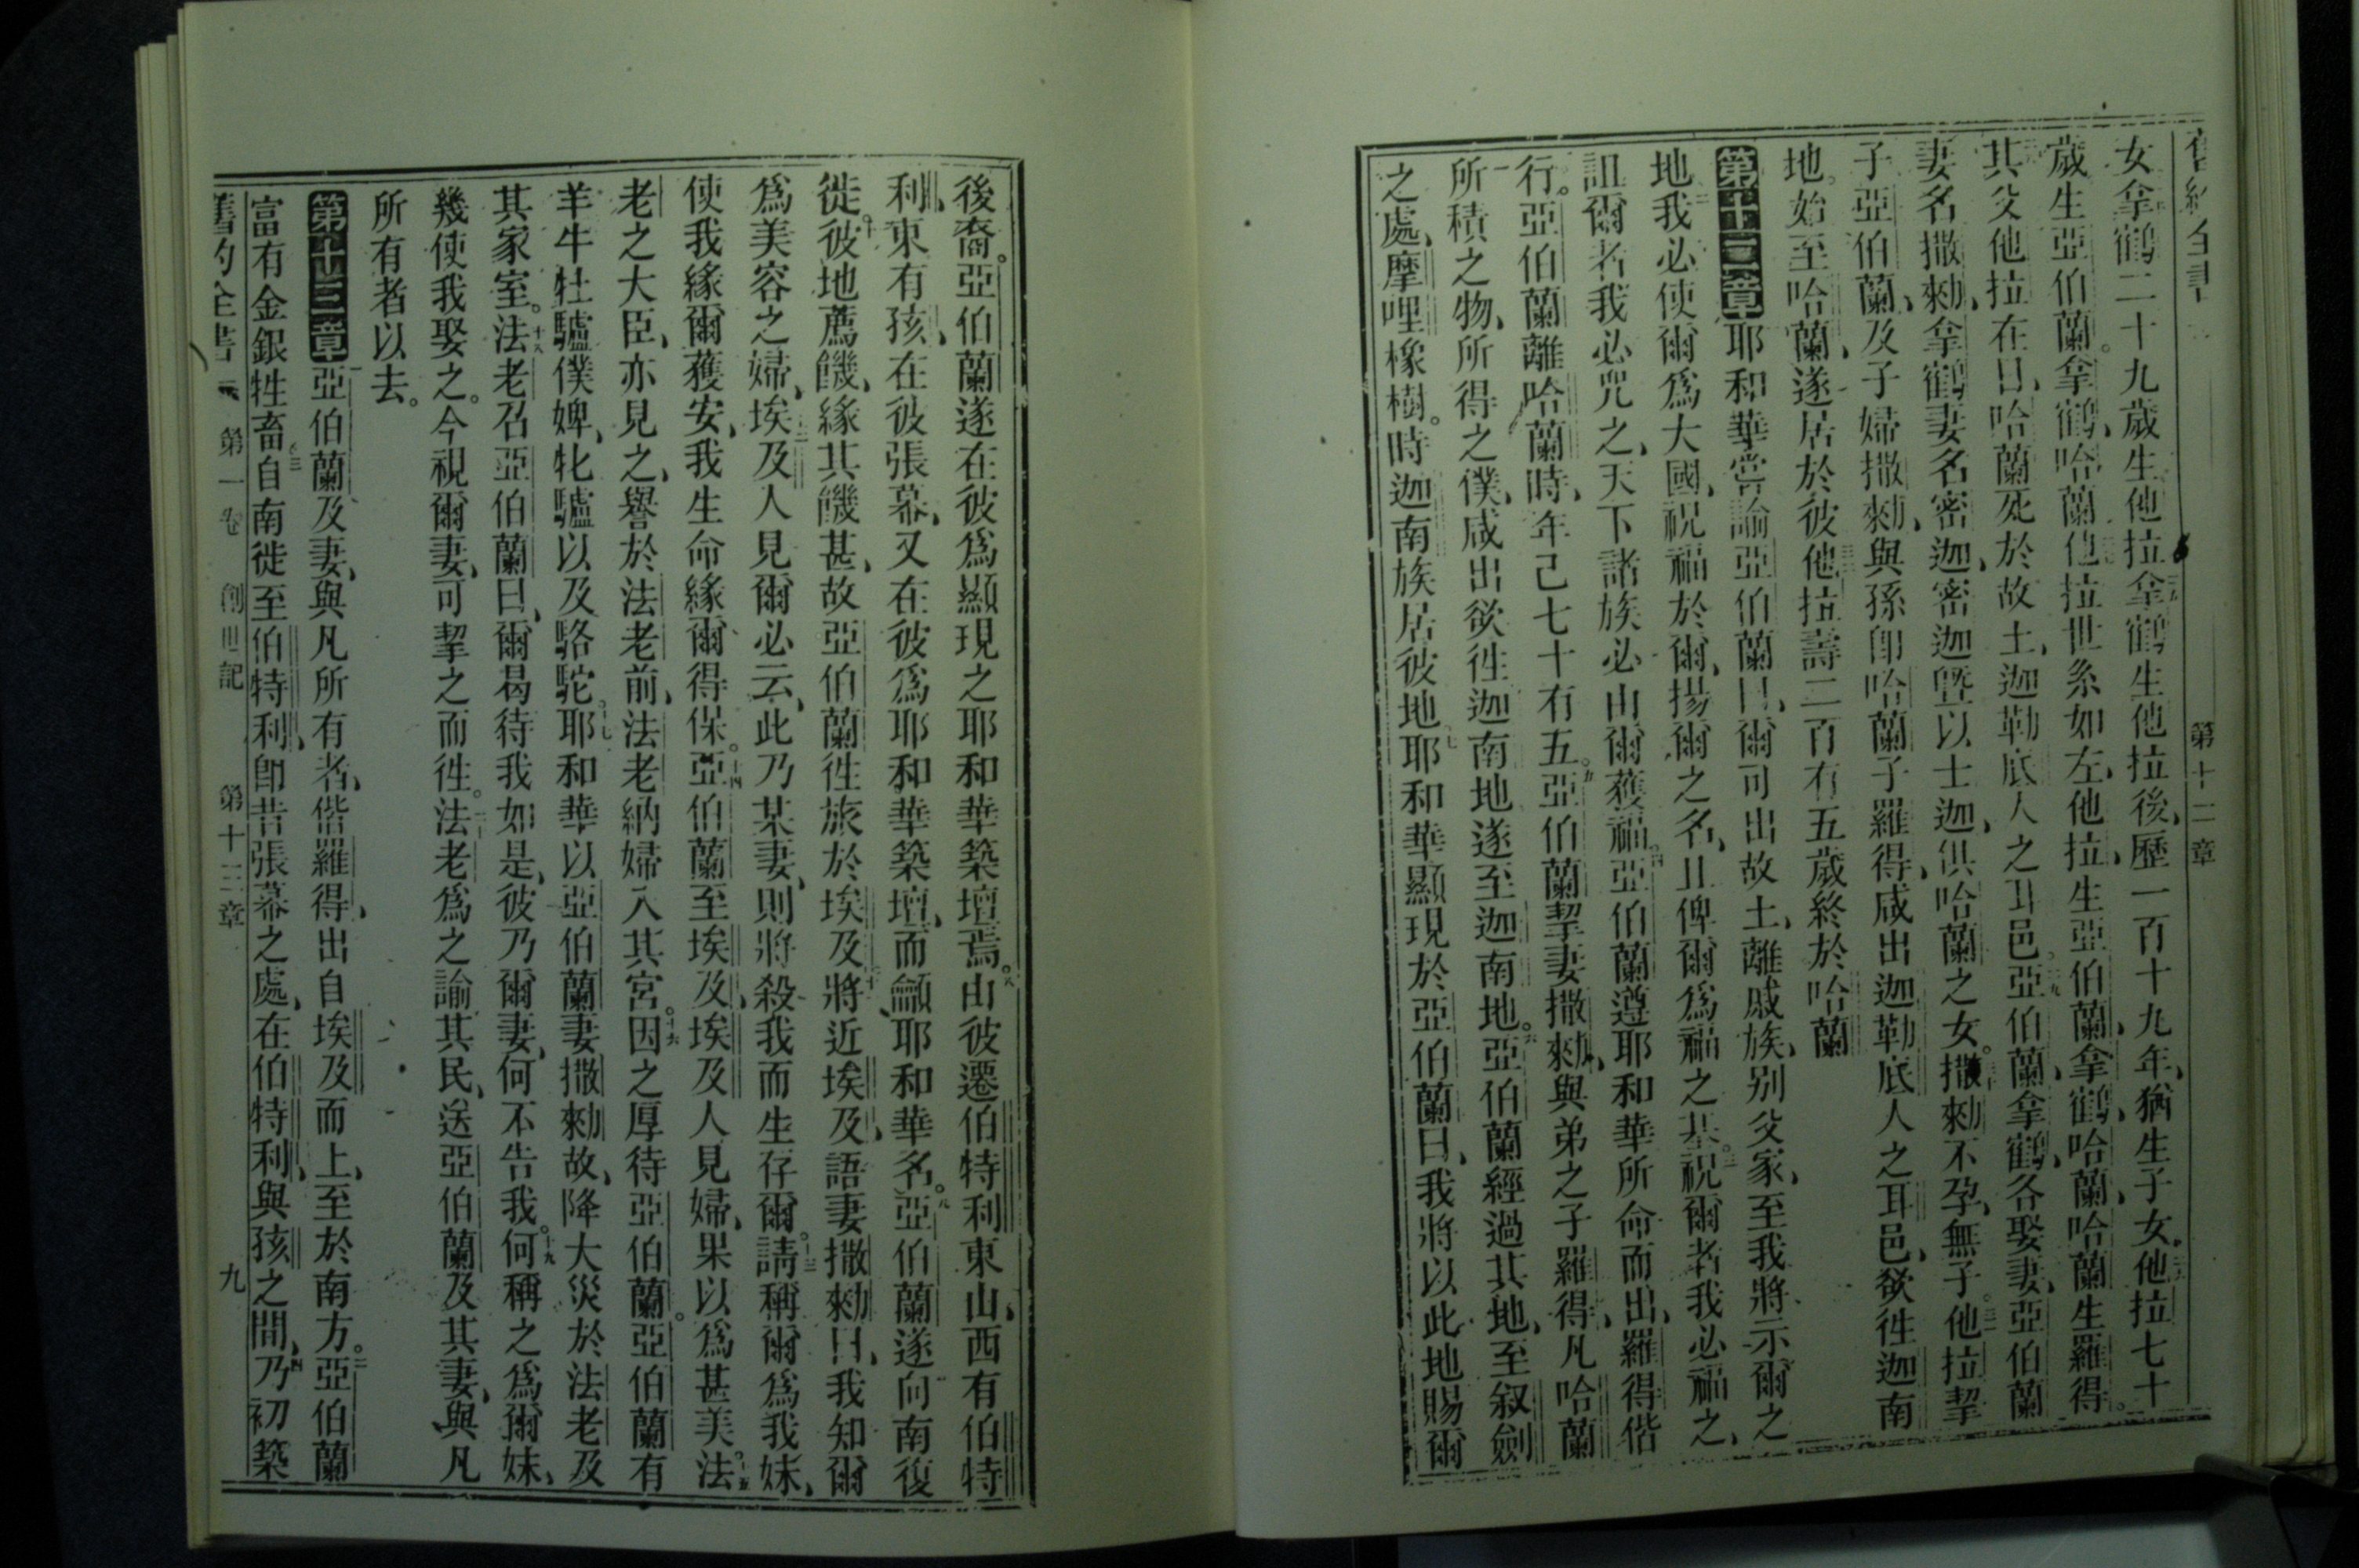 舊約全書 第十二章
女拿鶴二十九歲生他拉拿鶴生他拉後歷一百十九年猶生子女他拉七十
歲生亞伯蘭拿鶴哈蘭他拉世系如左他拉生亞伯蘭拿鶴哈蘭哈蘭生羅得
其父他拉在日哈蘭死於故土迦勒底人之耳邑亞伯蘭拿鶴各娶妻亞伯蘭
妻名撒勑拿鶴妻名密迦密迦曁以士迦俱哈蘭之女撒勑不孕無子他拉挈
子亞伯蘭及子婦撒勑與孫卽哈蘭子羅得咸出迦勒底人之耳邑欲徃迦南
地始至哈蘭遂居於彼他拉壽二百有五歲終於哈蘭
第十二章耶和華嘗諭亞伯蘭曰爾可出故土離戚族別父家至我將示爾之
地我必使爾爲大國祝福於爾揚爾之名且俾爾爲福之基祝爾者我必福之
詛爾者我必咒之天下諸族必由爾獲福亞伯蘭遵耶和華所命而出羅得偕
行亞伯蘭離哈蘭時年已七十有五亞伯蘭挈妻撒勑與弟之子羅得凡哈蘭
所積之物所得之僕咸出欲徃迦南地遂至迦南地亞伯蘭經過其地至叙劍
之處摩哩橡樹時迦南族居彼地耶和華顯現於亞伯蘭曰我將以此地賜爾
後裔亞伯蘭遂在彼爲顯現之耶和華築壇焉由彼遷伯特利東山西有伯特
利東有孩在彼張幕又在彼爲耶和華築壇而龥耶和華名亞伯蘭遂向南復
徙彼地薦饑緣其饑甚故亞伯蘭徃旅於埃及將近埃及語妻撒勑曰我知爾
爲美容之婦埃及人見爾必云此乃某妻則將殺我而生存爾請稱爾爲我妹
使我緣爾獲安我生命緣爾得保亞伯蘭至埃及埃及人見婦果以爲甚美法
老之大臣亦見之譽於法老前法老納婦入其宮因之厚待亞伯蘭亞伯蘭有
羊牛牡驢僕婢牝驢以及駱駝耶和華以亞伯蘭妻撒勑故降大災於法老及
其家室法老召亞伯蘭曰爾曷待我如是彼乃爾妻何不告我何稱之爲爾妹
幾使我娶之今視爾妻可挈之而徃法老爲之諭其民送亞伯蘭及其妻與凡
所有者以去
第十三章亞伯蘭及妻與凡所有者偕羅得出自埃及而上至於南方亞伯蘭
富有金銀牲畜自南徙至伯特利卽昔張幕之處在伯特利與孩之間乃初築
舊約全書 第一卷 創世記 第十三章 九